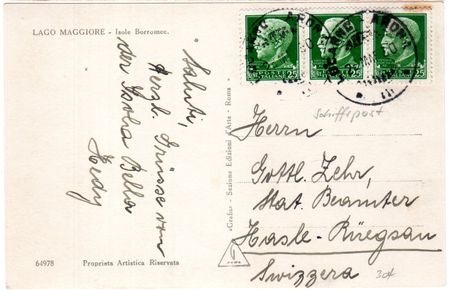 LAGO MAGGIORE - Isole Borromee.
Saluti,
Herzl. Grüsse von
der Isola Bella
Hedy
64978 Proprietà Artistica Riservata
«Grafia» - Sezione Edizioni d'Arte - Roma
25
25
25
Schiffspost
Herrn
Gottl. Zehr,
Stat. Beamter
Hasle-Rüegsau
Svizzera